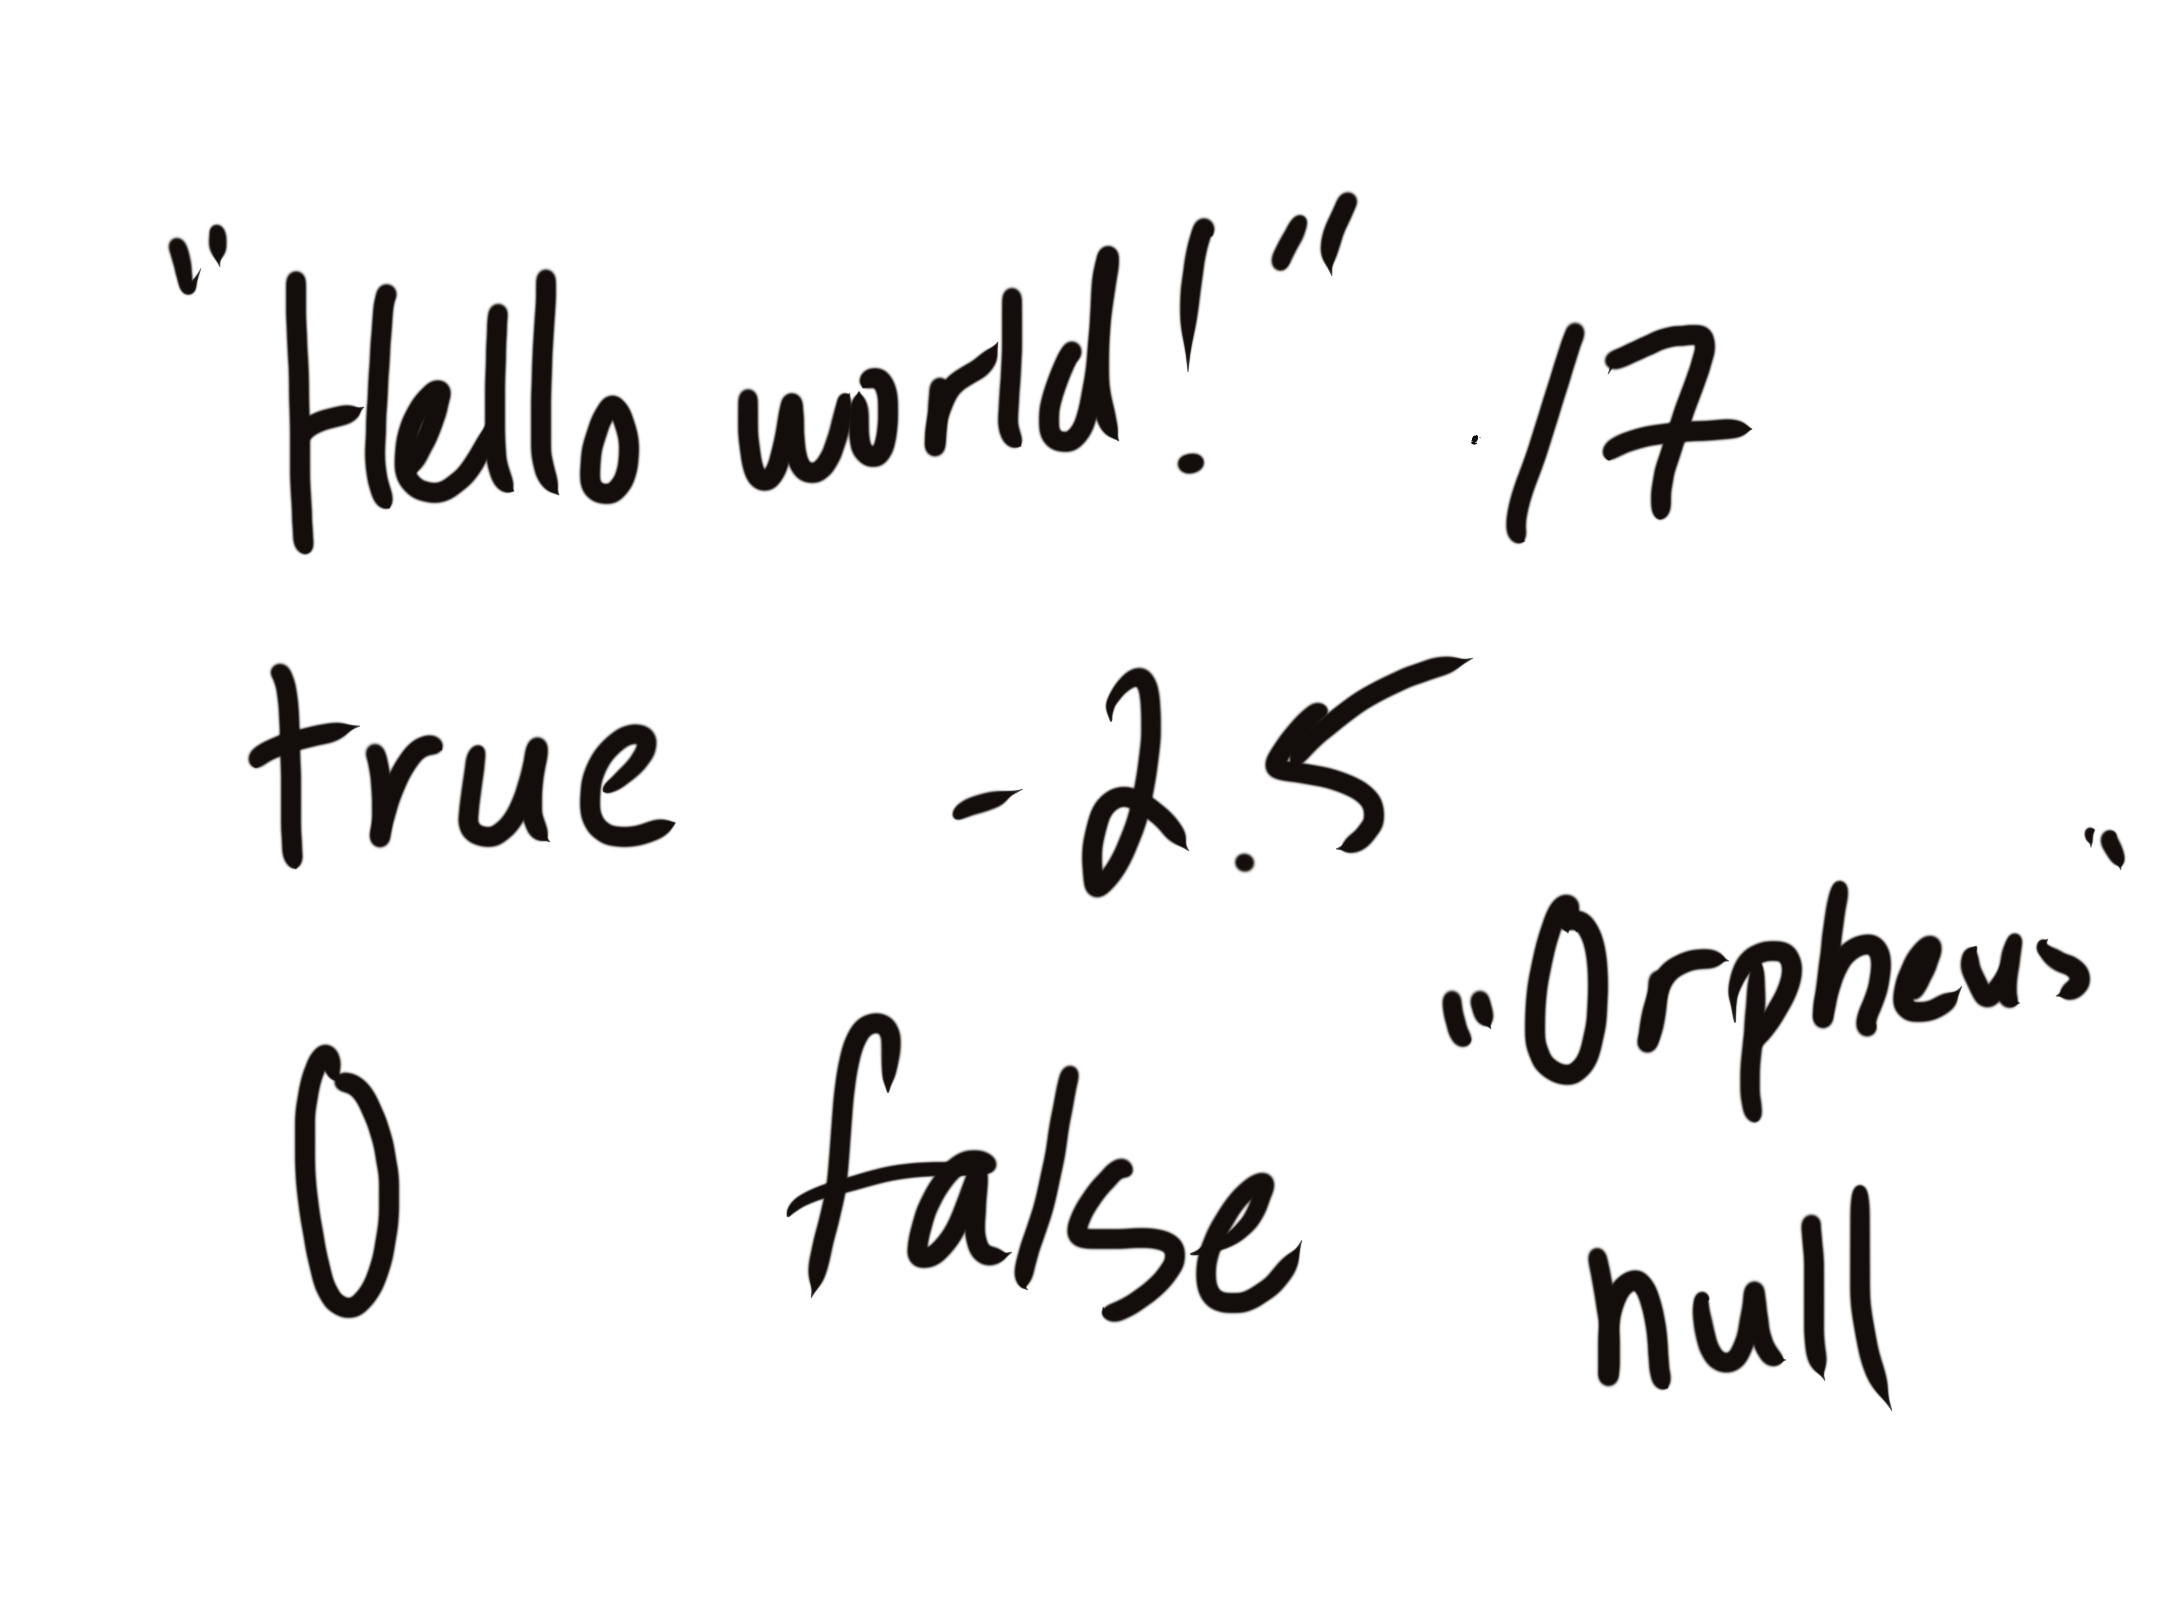 "Hello world!" 17
true -2.5
"Orpheus"
0 false
null